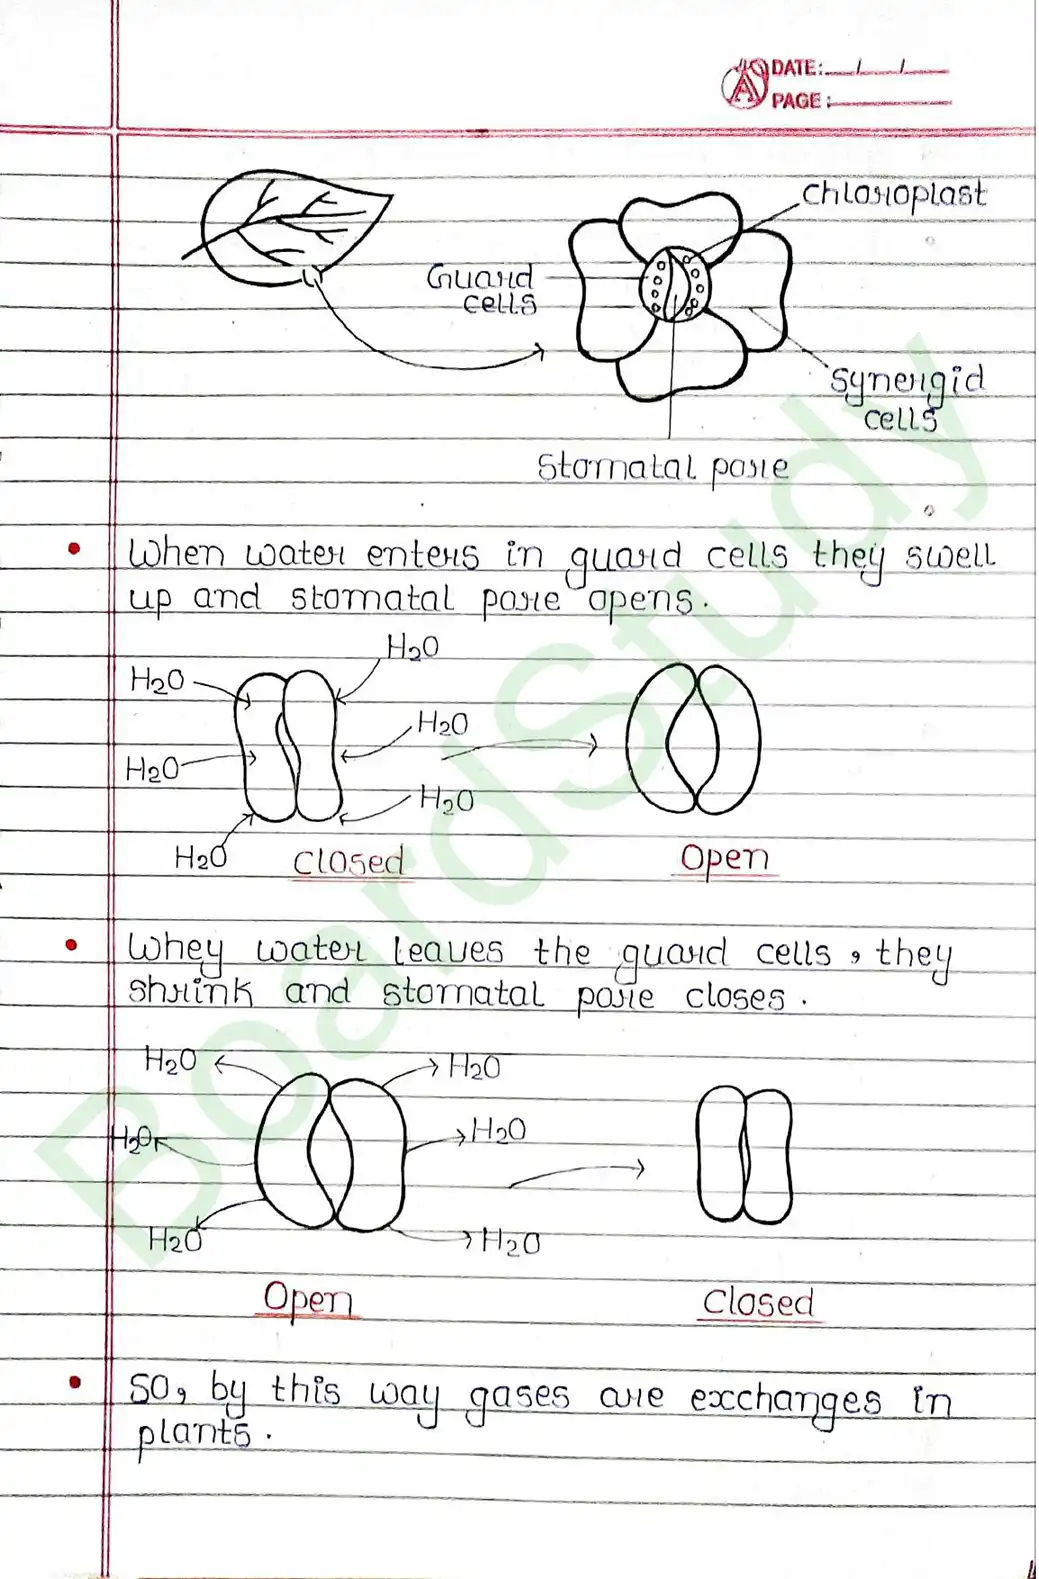 DATE: / /
PAGE:
Chloroplast
Guard
cells
Synergid
cells
Stomatal pore
• When water enters in guard cells they swell
up and stomatal pore opens.
H2O
H2O
H2O
H2O
H2O
H2O
Closed
Open
• Whey water leaves the guard cells, they
shrink and stomatal pore closes.
H2O
H2O
H2O
H2O
H2O
H2O
Open
Closed
• So, by this way gases are exchanges in
plants.
BoardStudy